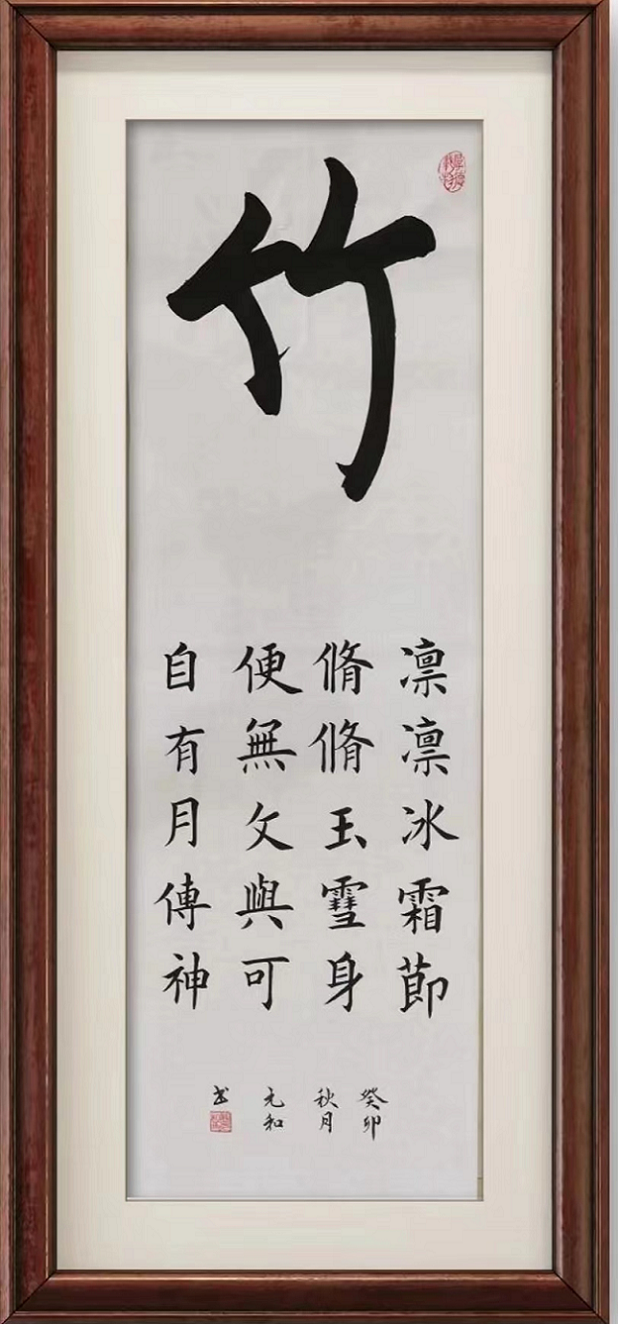 竹
凛凛冰霜節
脩脩玉雪身
便無文與可
自有月傳神
癸卯
秋月
元和
书